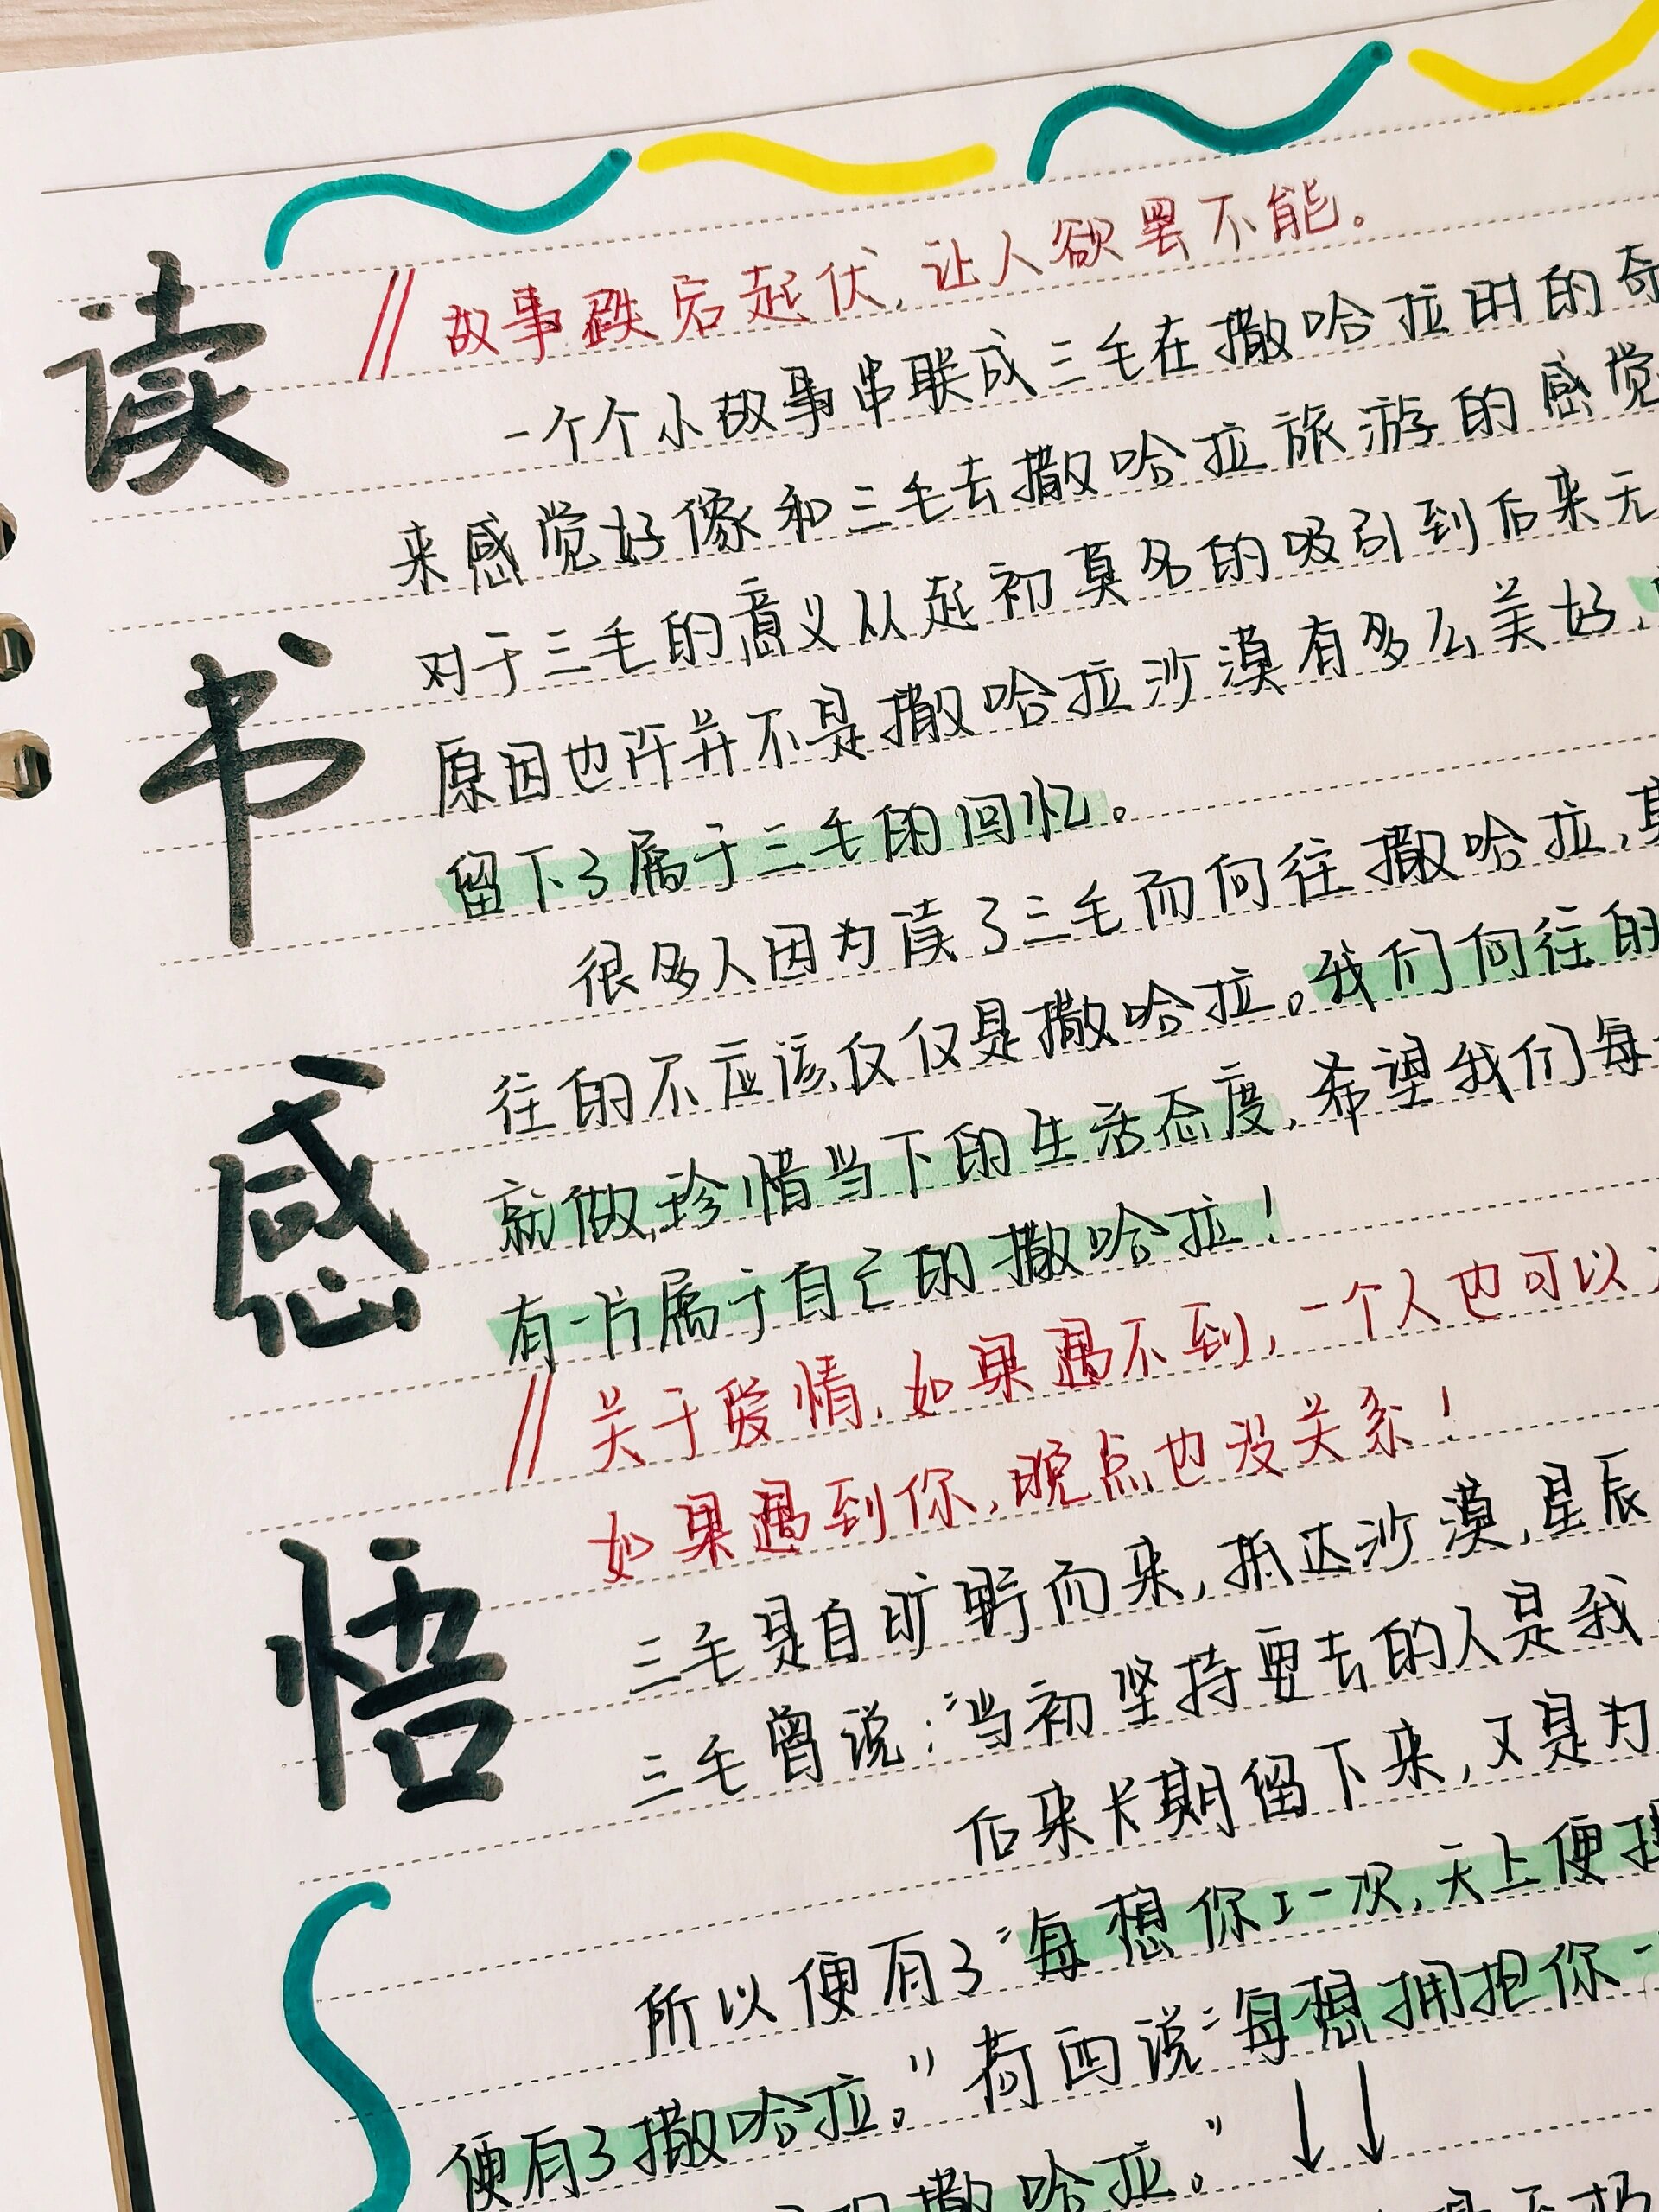 读书感悟
故事跌宕起伏，让人欲罢不能。
一个个小故事串联成三毛在撒哈拉时的奇
来感觉好像和三毛去撒哈拉旅游的感觉
对于三毛的意义从起初莫名的吸引到后来无
原因也许并不是撒哈拉沙漠有多么美好，
留下了属于三毛的回忆。
很多人因为读了三毛而向往撒哈拉，其
往的不应该仅仅是撒哈拉。我们向往的
就做，珍惜当下的生活态度，希望我们每
有一片属于自己的撒哈拉！
关于爱情，如果遇不到，一个人也可以
如果遇到你，晚点也没关系！
三毛是自旷野而来，抵达沙漠，星辰
三毛曾说：“当初坚持要去的人是我
后来长期留下来，又是为
所以便有了“每想你一次，天上便
便有了撒哈拉。”荷西说“每想拥抱你一
撒哈拉。”